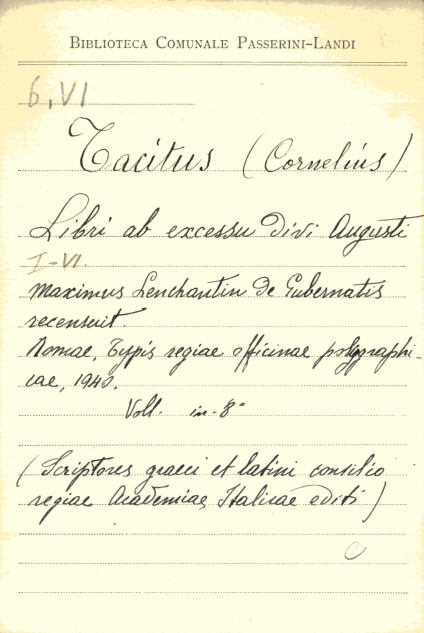 BIBLIOTECA COMUNALE PASSERINI-LANDI
6, VI
Tacitus (Cornelius)
Libri ab excessu divi Augusti
I-VI.
Maximus Lenchantin De Gubernatis
recensuit.
Romae, Typis regiae officinae polygraphi-
cae, 1940.
Voll. in-8°
(Scriptores graeci et latini consilio
regiae Academiae Italicae editi)
C